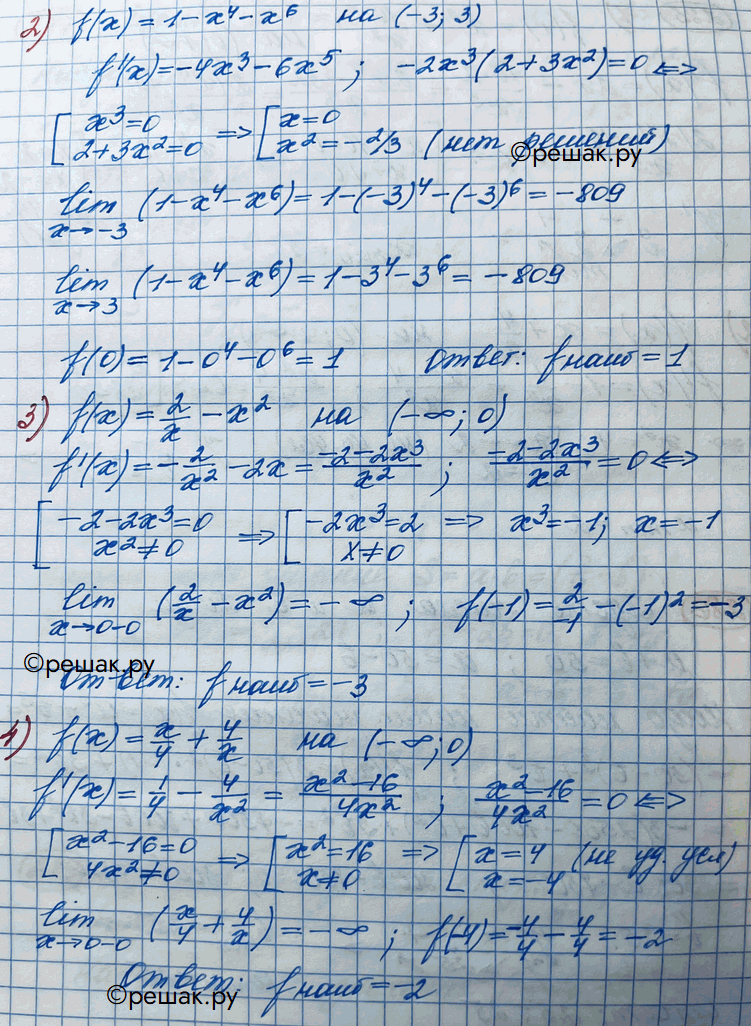 2) f(x) = 1 - x⁴ - x⁶ на (-3; 3)
f'(x) = -4x³ - 6x⁵ ; -2x³(2 + 3x²) = 0 <=>
[ x³ = 0 => [ x = 0
2 + 3x² = 0 x² = -2/3 (нет решений)
©решак.ру
lim (1 - x⁴ - x⁶) = 1 - (-3)⁴ - (-3)⁶ = -809
x→-3
lim (1 - x⁴ - x⁶) = 1 - 3⁴ - 3⁶ = -809
x→3
f(0) = 1 - 0⁴ - 0⁶ = 1 Ответ: f наиб = 1
3) f(x) = 2/x - x² на (-∞; 0)
f'(x) = -2/x² - 2x = (-2 - 2x³)/x² ; (-2 - 2x³)/x² = 0 <=>
[ -2 - 2x³ = 0 => [ -2x³ = 2 => x³ = -1; x = -1
x² ≠ 0 x ≠ 0
lim (2/x - x²) = -∞ ; f(-1) = 2/-1 - (-1)² = -3
x→0-0
©решак.ру
Ответ: f наиб = -3
4) f(x) = x/4 + 4/x на (-∞; 0)
f'(x) = 1/4 - 4/x² = (x² - 16)/4x² ; (x² - 16)/4x² = 0 <=>
[ x² - 16 = 0 => [ x² = 16 => [ x = 4 (не уд. усл)
4x² ≠ 0 x ≠ 0 x = -4
lim (x/4 + 4/x) = -∞ ; f(-4) = -4/4 - 4/4 = -2
x→0-0
Ответ: f наиб = -2
©решак.ру